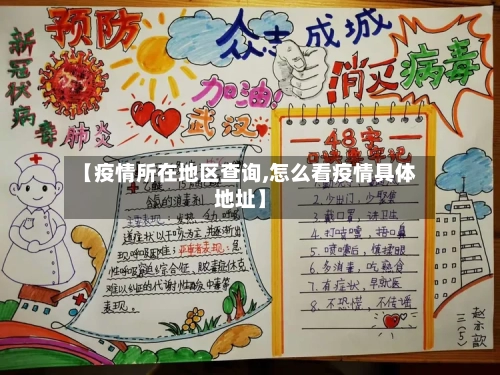 预防
新冠状病毒肺炎
众志成城
消灭病毒
加油!
武汉
【疫情所在地区查询,怎么看疫情具体
地址】
48字
含氯的消毒剂
主要表现:发热、乏力、呼吸
道症状以干咳为主,并逐渐出
现呼吸困难;
性呼吸窘迫综合征、脓毒症休克、
难以纠正的代谢性酸
表现。
2.少出门,少聚集
3.戴口罩,讲卫生
4.打喷嚏,捂口鼻
5.喷嚏后,慎揉眼
6.多消毒,吃熟食
7.有症状,早就医
8.不恐慌,不传谣
三(5)